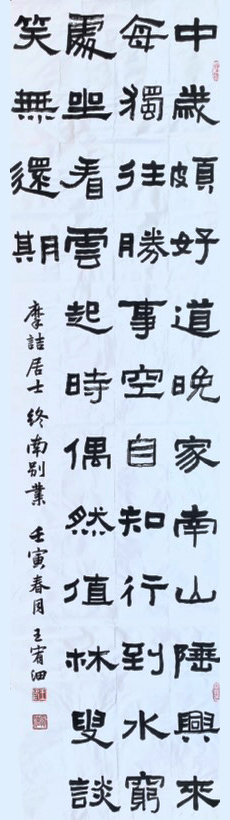 中歲頗好道晚家南山陲興來
每獨往勝事空自知行到水窮
處坐看雲起時偶然值林叟談
笑無還期
摩詰居士終南别業 壬寅春月 王